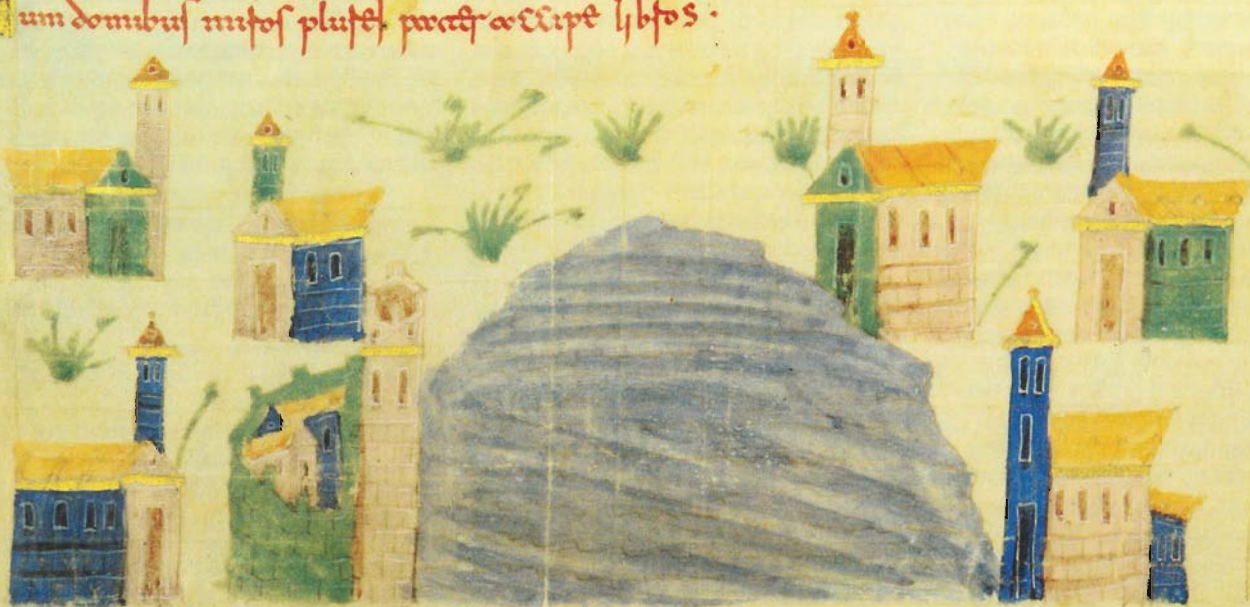 um domibus miros plures pater accipe libros ·